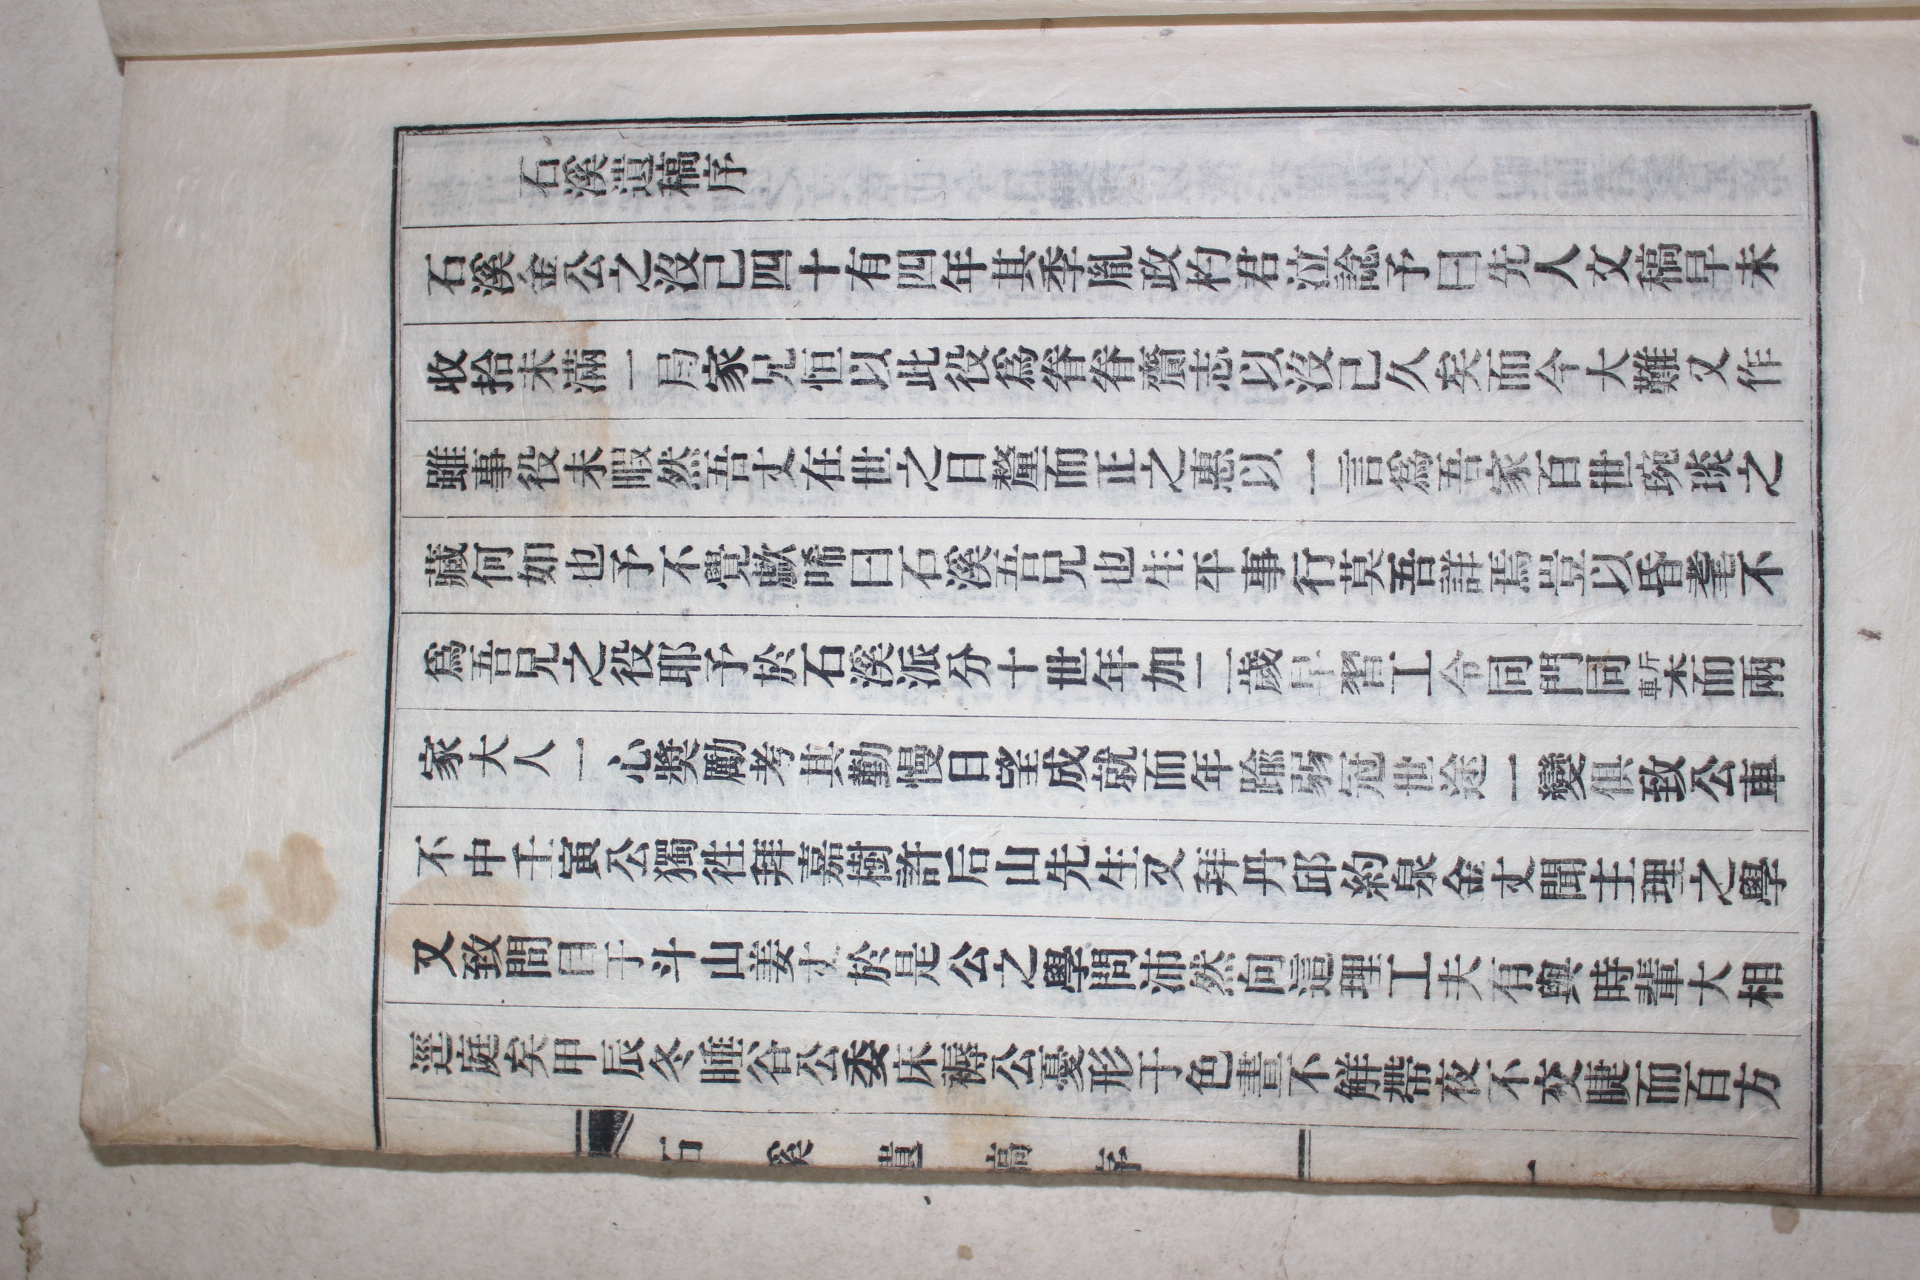 石溪遺稿序
石溪金公之沒已四十有四年其季胤政杓君泣諗予曰先人文稿早未
收拾未滿一局家兄恒以此役爲眷眷齎志以沒已久矣而今大難又作
雖事役未暇然吾丈在世之日釐而正之惠以一言爲吾家百世琬琰之
藏何如也予不覺歔唏曰石溪吾兄也生平事行莫吾詳焉豈以昏耄不
爲吾兄之役耶予於石溪派分十世年加二歲早習工令同門同槧而兩
家大人一心獎勵考其勤慢日望成就而年踰弱冠世途一變俱致公車
不中壬寅公獨徃拜嘉樹許后山先生又拜丹邱約泉金丈聞主理之學
又致問目于斗山姜丈於是公之學問沛然向這理工夫有與時輩大相
逕庭矣甲辰冬睡谷公委床褥公憂形于色晝不鮮帶夜不交睫而百方
石溪遺稿序
一